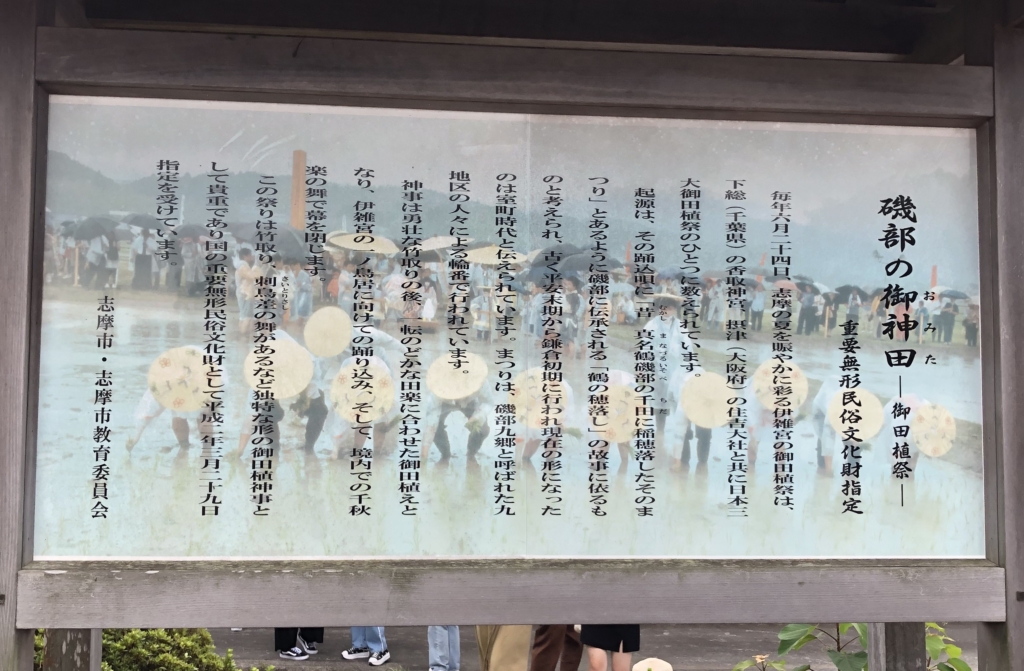 磯部の御神田 ―御田植祭―
おみた
重要無形民俗文化財指定
毎年六月二十四日、志摩の夏を賑やかに彩る伊雑宮の御田植祭は、
下総（千葉県）の香取神宮、摂津（大阪府）の住吉大社と共に日本三
大御田植祭のひとつに数えられています。
起源は、その踊込唄に「昔、真名鶴磯部の千田に稲穂落したそのま
つり」とあるように磯部に伝承される「鶴の穂落し」の故事に依るも
のと考えられ、古く平安末期から鎌倉初期に行われ現在の形になった
のは室町時代と伝えられています。まつりは、磯部九郷と呼ばれた九
地区の人々による輪番で行われています。
神事は勇壮な竹取りの後、一転のどかな田楽に合わせた御田植えと
なり、伊雑宮の一ノ鳥居に向けての踊り込み、そして、境内での千秋
楽の舞で幕を閉じます。
この祭りは竹取り、刺鳥差の舞があるなど独特な形の御田植神事と
さいとりさし
して貴重であり国の重要無形民俗文化財として平成二年三月二十九日
指定を受けています。
志摩市・志摩市教育委員会